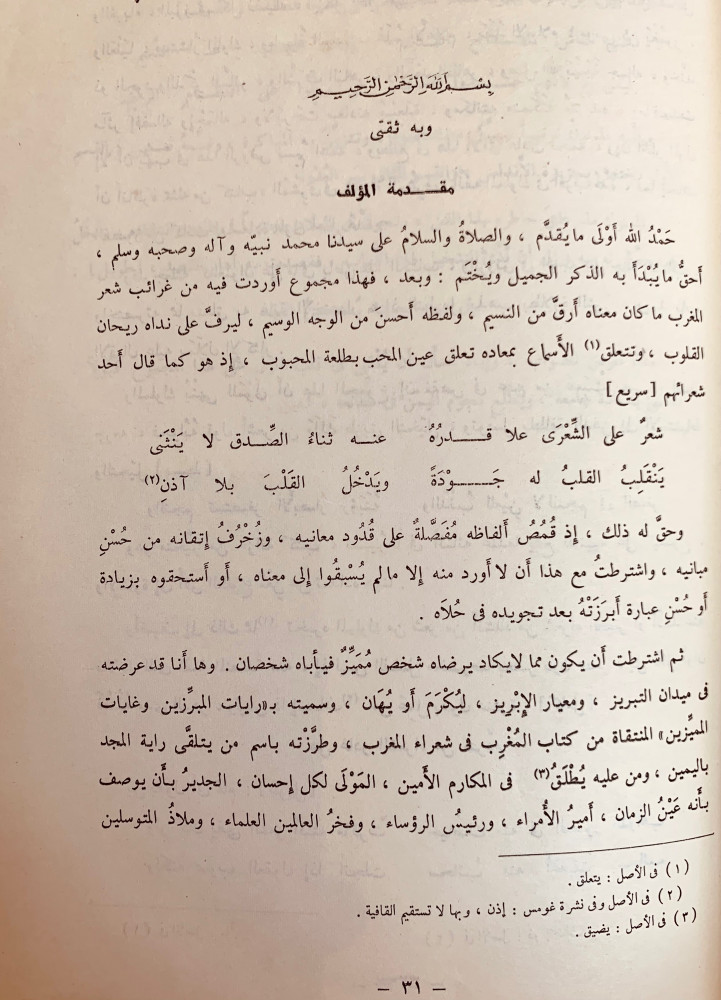 بِسْمِ اللهِ الرَّحْمٰنِ الرَّحِيمِ
وبه ثقتى
مقـدمة المؤلف
حَمْدُ الله أَوْلَى ما يُقدَّم ، والصلاةُ والسلامُ على سيدنا محمد نبيّه وآله وصحبه وسلم ،
أحقُّ ما يُبْدَأُ به الذكر الجميل ويُخْتَم : وبعد ، فهذا مجموع أوردت فيه من غرائب شعر
المغرب ما كان معناه أرقَّ من النسيم ، ولفظه أحسنَ من الوجه الوسيم ، ليرفَّ على نداه ريحان
القلوب ، وتتعلق(١) الأسماع بمعاده تعلق عين المحب بطلعة المحبوب ، إذ هو كما قال أحد
شعرائهم [سريع]
شعرٌ على الشِّعْرَى علا قـدرُهُ عنـه ثناءُ الصِّـدق لا يَنْثَنى
يَنْقَلِبُ القلبُ له جَـوْدَةً ويَدْخُلُ القَلْبَ بلا آذنِ(٢)
وحقَّ له ذلك ، إذ قُمُصُ ألفاظه مُفَصَّلةٌ على قُدُود معانيه ، وزُخْرُفُ إتقانه من حُسْنِ
مبانيه ، واشترطتُ مع هذا أن لا أورد منه إلا ما لم يُسْبقُوا إلى معناه ، أو أستحقوه بزيادة
أو حُسْنِ عبارة أبرَزَتْهُ بعد تجويده فى حُلَاه .
ثم اشترطت أن يكون مما لايكاد يرضاه شخص مُمَيِّزٌ فيأباه شخصان . وها أنا قد عرضته
فى ميدان التبريز ، ومعيار الإبْرِيز ، ليُكْرَمَ أو يُهَان ، وسميته بـ«رايات المبرِّزين وغايات
المميِّزين» المنتقاة من كتاب المُغْرِب فى شعراء المغرب ، وطرَّزْته باسم من يتلقَّى راية المجد
باليمين ، ومن عليه يُطْلَقُ(٣) فى المكارم الأمين ، المَوْلَى لكل إحسان ، الجديرُ بأن يوصف
بأنه عَيْنُ الزمان ، أميرُ الأُمراء ، ورئيسُ الرؤساء ، وفخرُ العالمين العلماء ، وملاذُ المتوسلين
(١) فى الأصل : يتعلق .
(٢) فى الأصل وفى نشرة غومس : إذن ، وبها لا تستقيم القافية .
(٣) فى الأصل : يضيق .
– ٣١ –